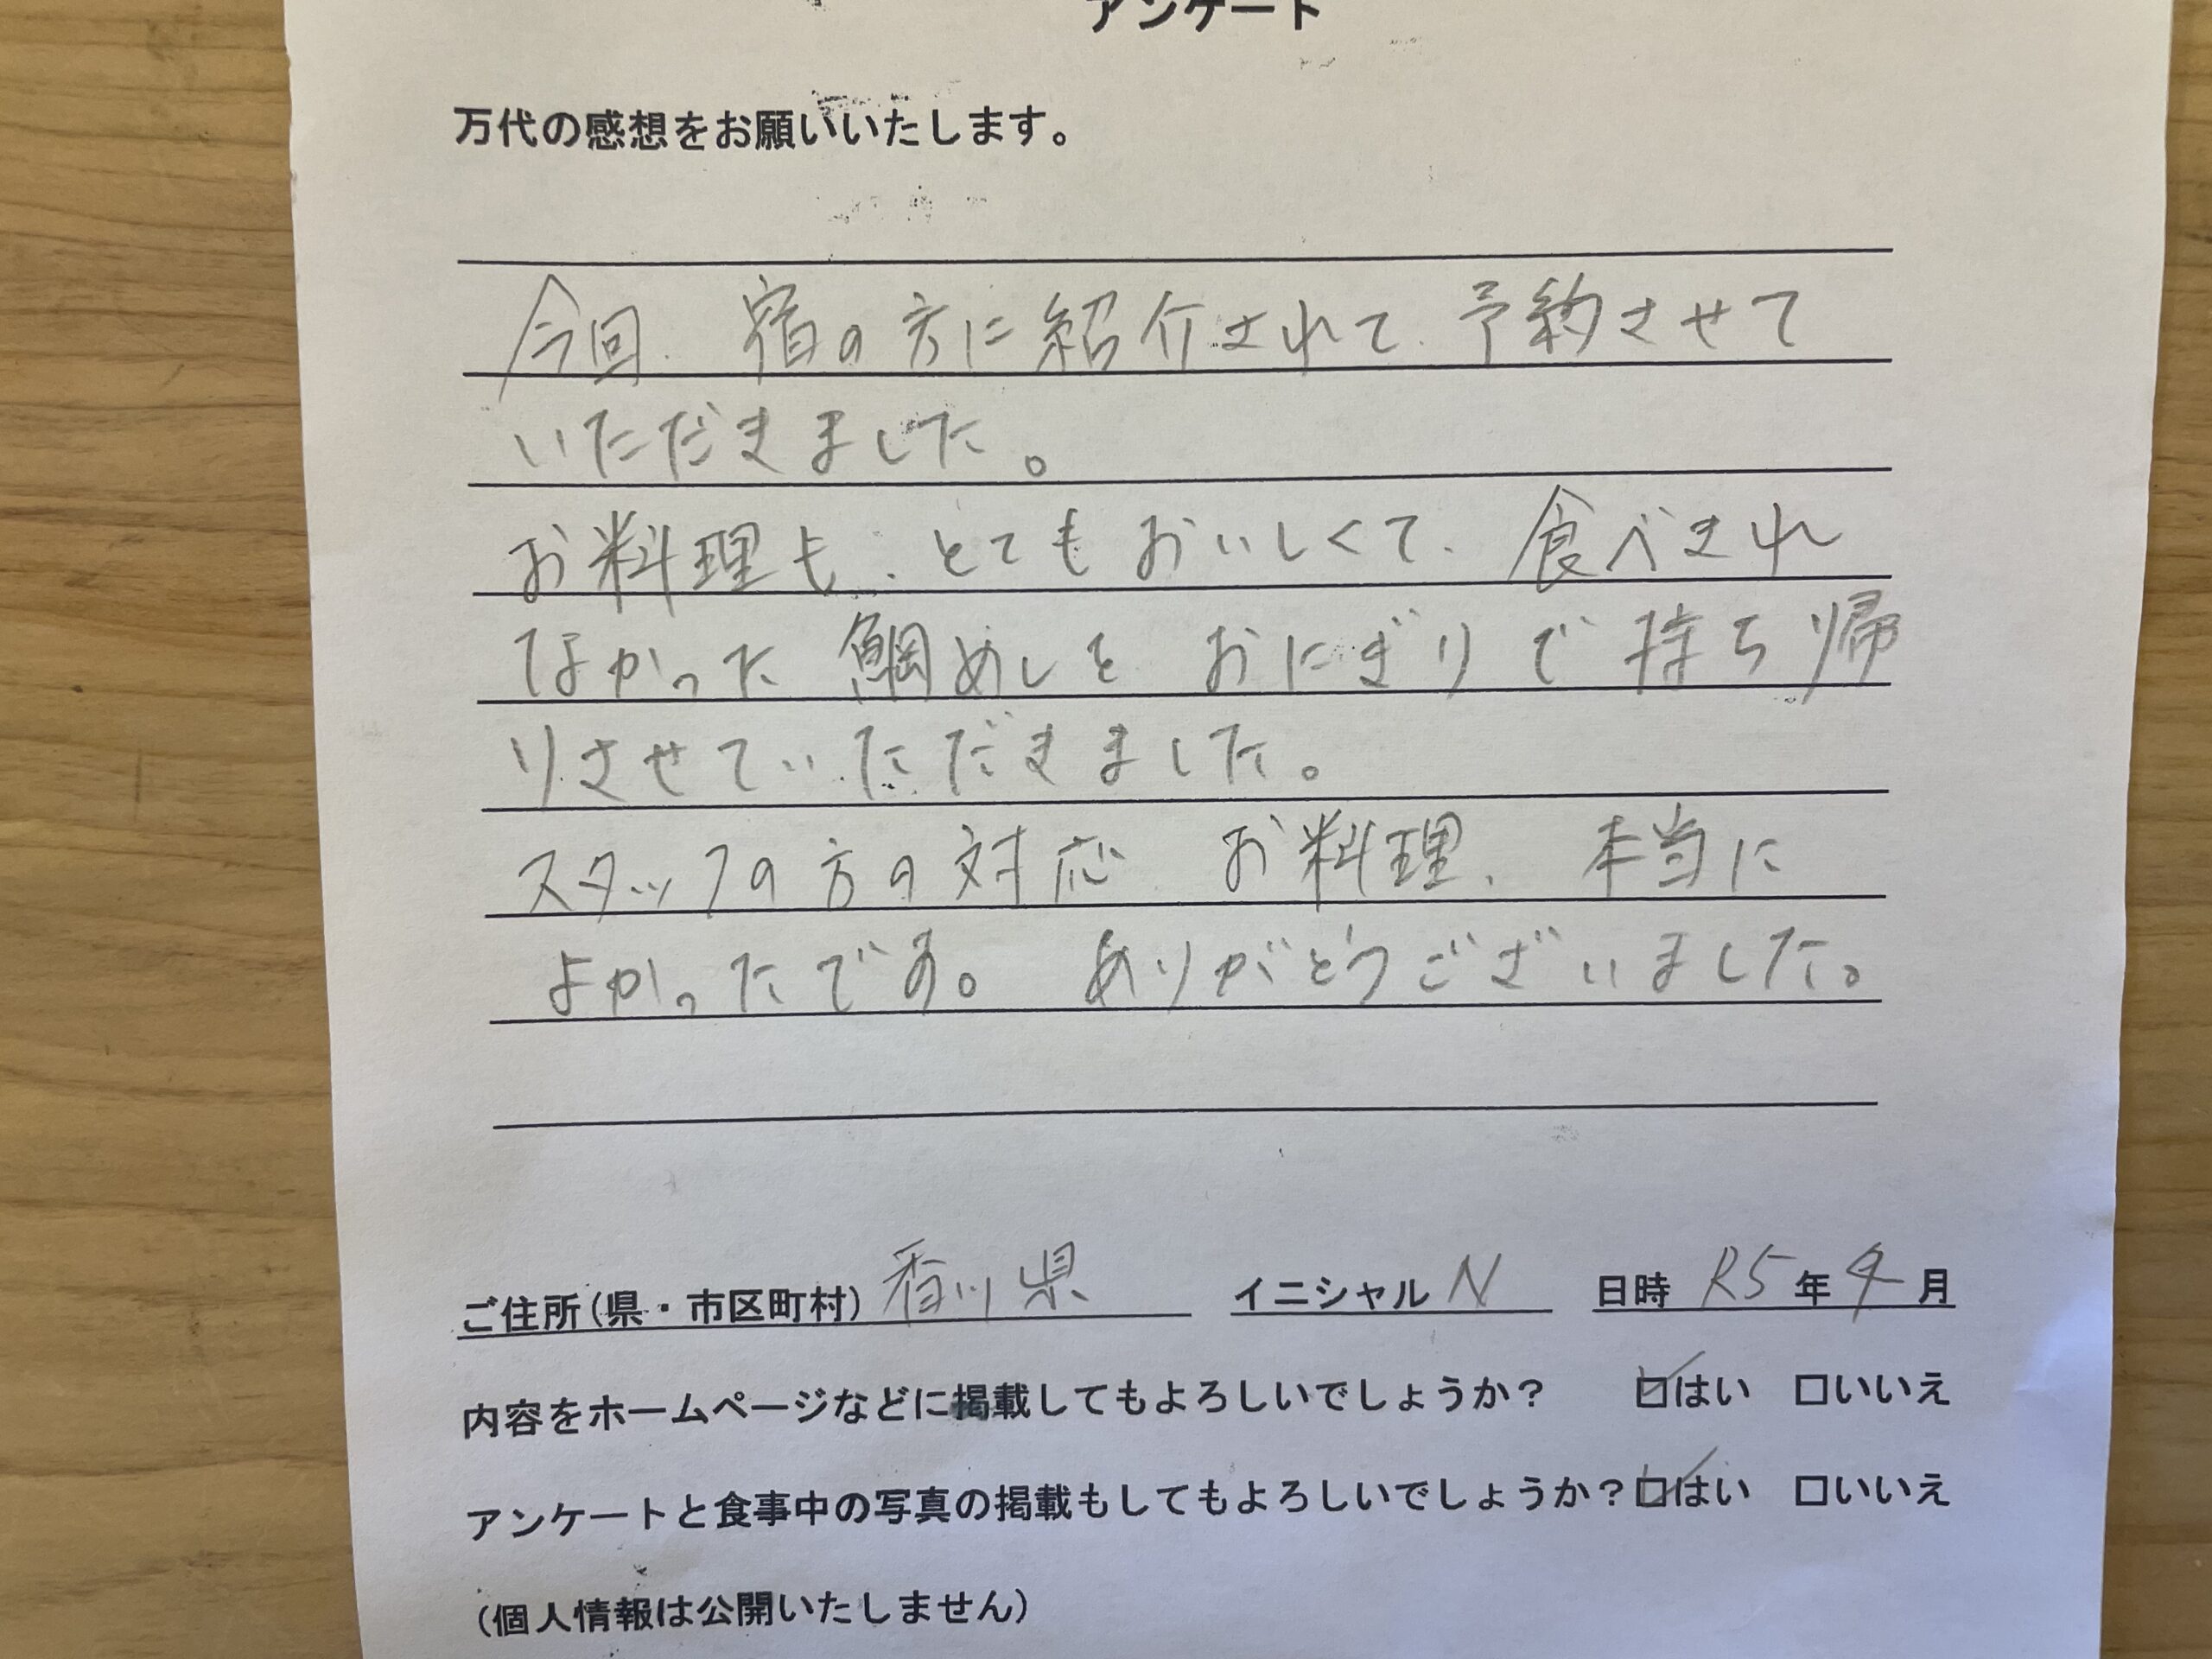 アンケート
万代の感想をお願いいたします。
今回、宿の方に紹介されて、予約させて
いただきました。
お料理も、とてもおいしくて、食べきれ
なかった鯛めしを おにぎりで持ち帰
りさせていただきました。
スタッフの方の対応、お料理、本当に
よかったです。 ありがとうございました。
ご住所(県・市区町村) 香川県 イニシャル N 日時 R5年4月
内容をホームページなどに掲載してもよろしいでしょうか? ☑はい □いいえ
アンケートと食事中の写真の掲載もしてもよろしいでしょうか?☑はい □いいえ
(個人情報は公開いたしません)